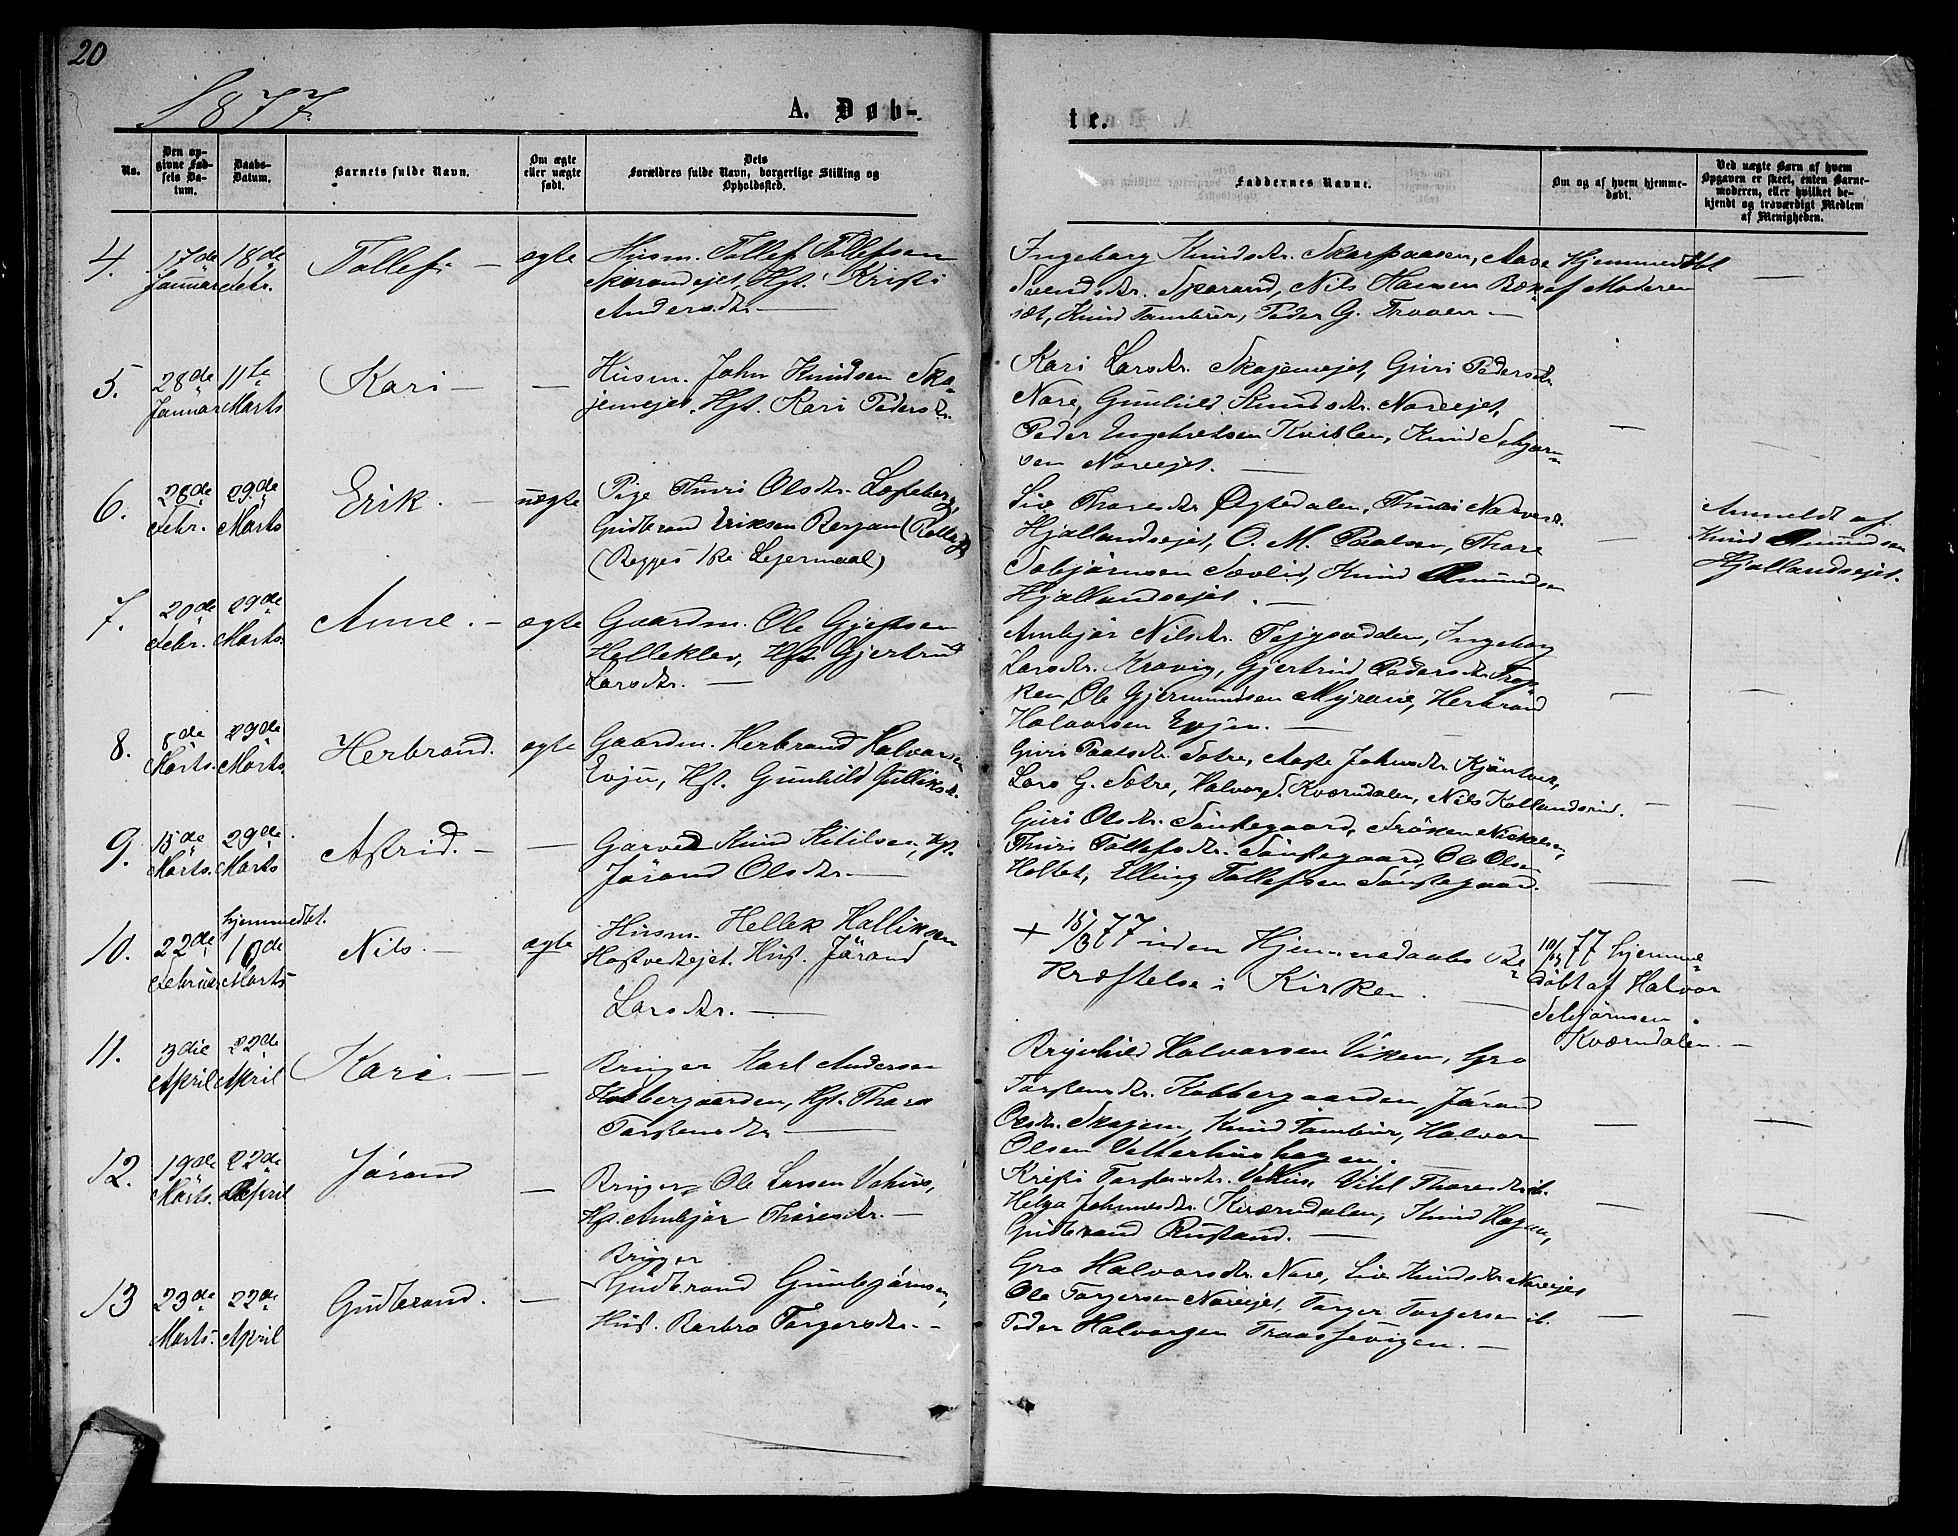 20
1877.
A. Døb-
te.
No.
Den op-
givne Fød-
sels Da-
tum.
Daabs-
Datum.
Barnets fulde Navn.
Om ægte
eller uægte
født.
Dets
Forældres fulde Navn, borgerlige Stilling og
Opholdssted.
Faddernes Navne.
Om og af hvem hjemme-
døbt.
Ved uægte Børn af hvem
Opgaven er skeet, enten Barne-
moderen, eller hvilket be-
kjendt og troværdigt Medlem
af Menigheden.
4.
17de
Januar
18de
Febr.
Tollef. —
ægte
Husm. Tollef Tollefsen
Skarandejet, Hst. Kristi
Andersdtr. —
Ingeborg Knudsdtr. Skarpaasen, Aase
Svendsdtr. Skarand, Nils Hansen Bæk-
sæt, Knud Tambur, Peder G. Traaen —
Hjemmedøbt
af Moderen
—
5.
28de
Januar
11te
Marts
Kari —
—
Husm. John Knudsen Ska-
jemejet. Hst. Kari Pedersdtr.
Kari Larsdtr. Skajemejet, Guri Pedersdtr.
Nore, Gunhild Knudsdtr. Noreejet,
Peder Ingebretsen Kvislen, Knud Sebjørn-
sen Noreejet. —
—
6.
28de
Febr.
29de
Marts
Erik. —
uægte
Pige Thuri Olsdtr.
Gudbrand Eriksen Bergan (Rollag)
(Begges 1ste Lejermaal)
Liv Thoresdtr. Øygtedalen, Thuri
Hjallandsejet, O. M. Paalsen, Thore
Sebjørnsen Sævlid, Knud Amundsen
Hjallandsejet. —
—
Anmeldt af
Knud Amundsen
Hjallandsejet.
7.
20de
Febr.
29de
Marts.
Anne. —
ægte
Gaardm. Ole
Helleklev, Hst. Gjertrud
Larsdtr. —
Ambjør Nilsdtr. Ingeborg
Larsdtr. Kravig, Gjertrud Pedersdtr.
Ole Gjermundsen Myrane, Herbrand
Halvorsen Evjen. —
—
8.
8de
Marts.
29de
Marts
Herbrand.
ægte
Gaardm. Herbrand Halvorsen
Evju, Hst. Gunhild Gulliksdtr.
Guri Paalsdtr. Sotre, Aase Johnsdtr.
Lars G. Sotre, Halvor S. Kværndalen, Nils Kollandsrud.
—
9.
15de
Marts.
29de
Marts
Astrid. —
—
Garver Knud Kittilsen, Hst.
Jørand Olsdtr. —
Guri Olsdtr. Søndregaard, Frøken Nickelsen,
Thuri Tollefsdtr. Søndregaard, Ole Olsen
Holtet, Elling Tollefsen Søndregaard.
—
10.
22de
Februar
hjemmedøbt.
10de
Marts
Nils. —
ægte
Husm. Hellek Halliksen
Hoftvedtejet. Hust. Jørand
Larsdtr. —
+ 15/3 77 uden Hjemmedaabs Be-
kræftelse i Kirken. —
10/3 77 hjemme-
døbt af Halvor
Sebjørnsen
Kværndalen. —
11.
3die
April
22de
April
Kari. —
—
Bruger Karl Andersen
Kobbergaarden, Hst. Thora
Torstensdtr. —
Brynhild Halvorsen Viken, Gro
Torstensdtr. Kobbergaarden, Jørand
Olsdtr. Skajem, Knud Tambur, Halvor
Olsen Vetterhushagen.
—
12.
19de
Marts.
22de
April
Jørand
—
Bruger Ole Larsen
Hst. Ambjør Thoresdtr. —
Kristi Torstensdtr. Thoresdtr. ib.
Helga Johnsdtr. Kværndalen, Knud Hagen,
Gudbrand Rustand. —
—
13
23de
Marts.
22de
April
Gudbrand.
—
Bruger
Gudbrand Gunbjørnsen,
Hust. Barbro Torgersdtr. —
Gro Halvorsdtr. Nore, Liv Knudsdtr. Noreejet
Ole Torgersen Noreejet, Torger Torgersen ib.
Peder Halvorsen —
—